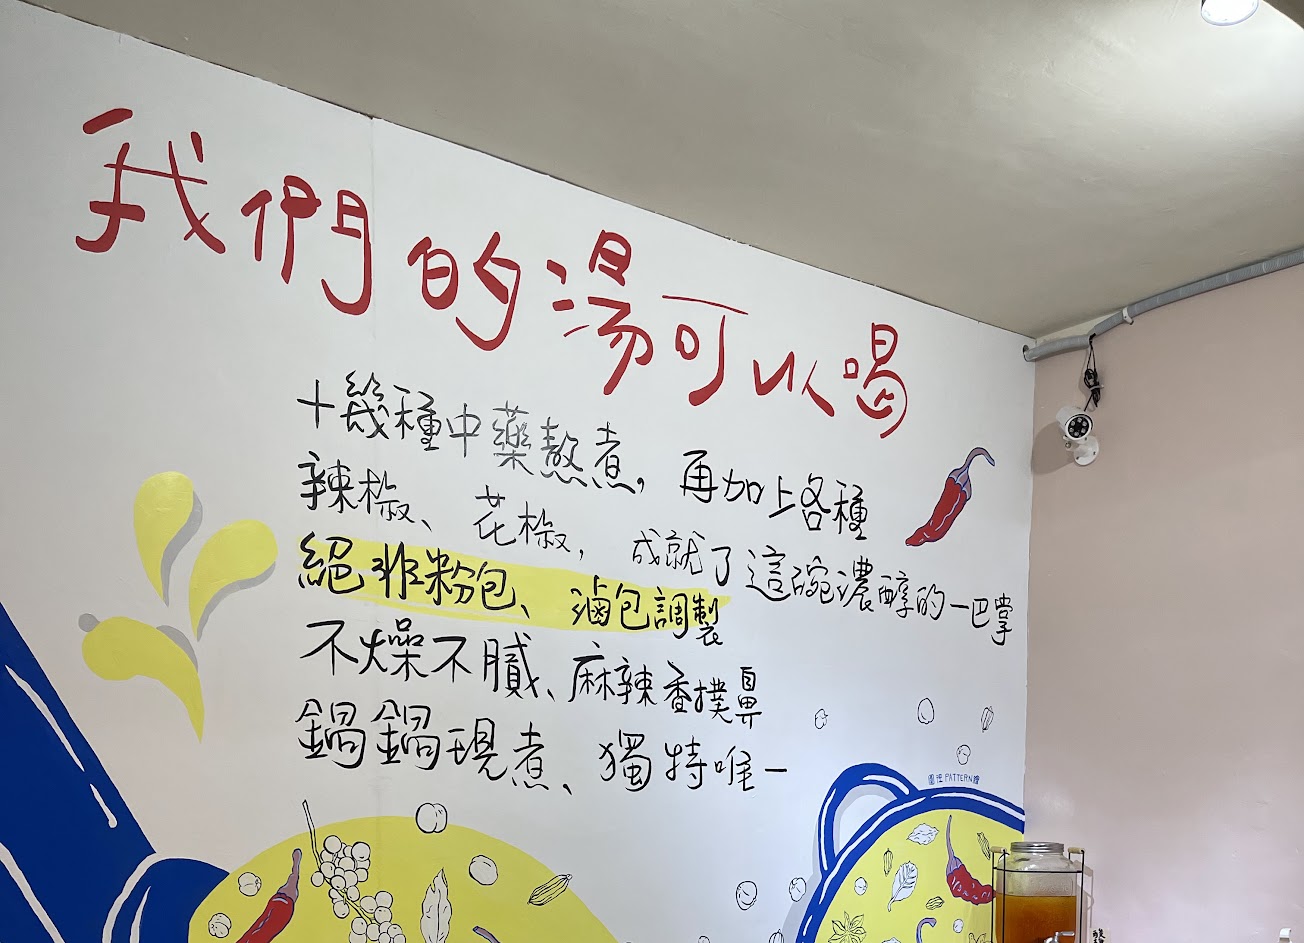 我們的湯可以喝
十幾種中藥熬煮，再加上各種
辣椒、花椒，成就了這碗濃醇的一巴掌
絕非粉包、滷包調製
不燥不膩、麻辣香撲鼻
鍋鍋現煮、獨特唯一
PATTERN繪